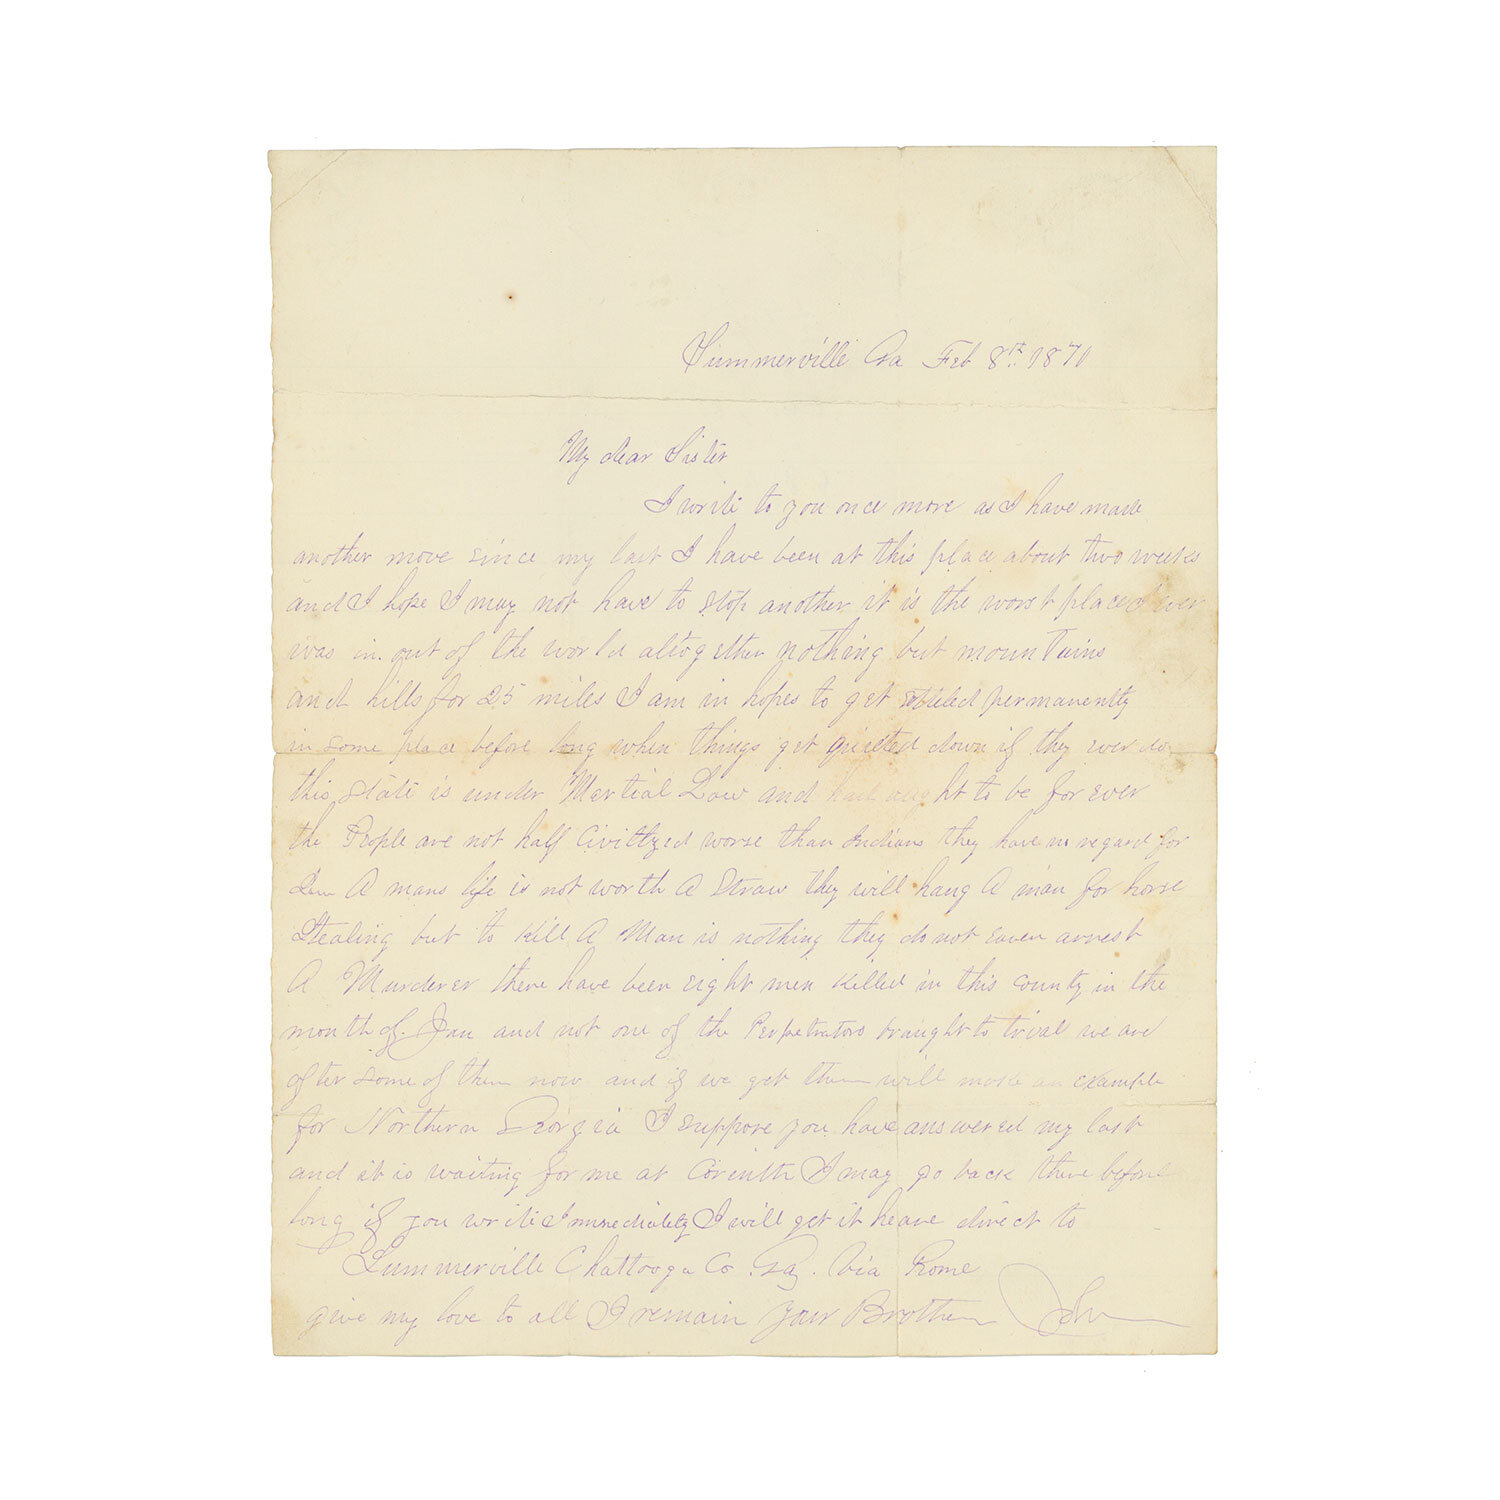 Summerville Ga Feb 8th. 1870
My dear Sister
I write to you once more as I have made
another move since my last I have been at this place about two weeks
and I hope I may not have to stop another it is the worst place I ever
was in. out of the world altogether nothing but mountains
and hills for 25 miles I am in hopes to get settled permanently
in some place before long when things get quieted down if they ever do
this state is under Martial Law and had aught to be for ever
the People are not half Civillyzed worse than Indians they have no regard for
Law A mans life is not worth A Straw they will hang A man for horse
Stealing but to Kill A Man is nothing they do not eaven arrest
A Murderer there have been eight men killed in this county in the
month of Jan and not one of the Perpetrators braught to trial we are
after some of them now and if we get them will make an example
for Northern Georgia I suppose you have answered my last
and it is waiting for me at Corinth I may go back there before
long if you write Immediately I will get it heare direct to
Summerville Chattooga Co. Ga. Via Rome
give my love to all I remain your Brother John